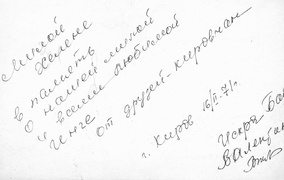 Милой
Хелене
в память
О нашей милой
и всеми любимой
Инге
от друзей-кировчан
г. Киров 16/II-71г.
Искра
Валентин